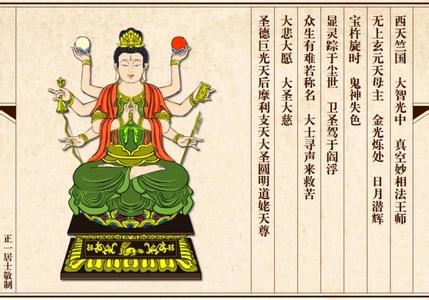 西天竺国　大智光中　真空妙相法王师
无上玄元天母主　金光烁处　日月潜辉
宝杵旋时　鬼神失色
显灵踪于尘世　卫圣驾于阎浮
众生有难若称名　大士寻声来救苦
大悲大愿　大圣大慈
圣德巨光天后摩利支天大圣圆明道姥天尊
正一居士敬制